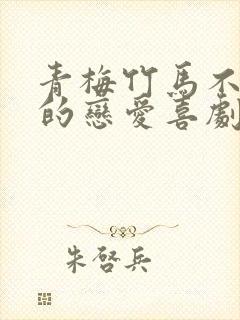 青梅竹馬不
的戀愛喜劇
朱啓兵